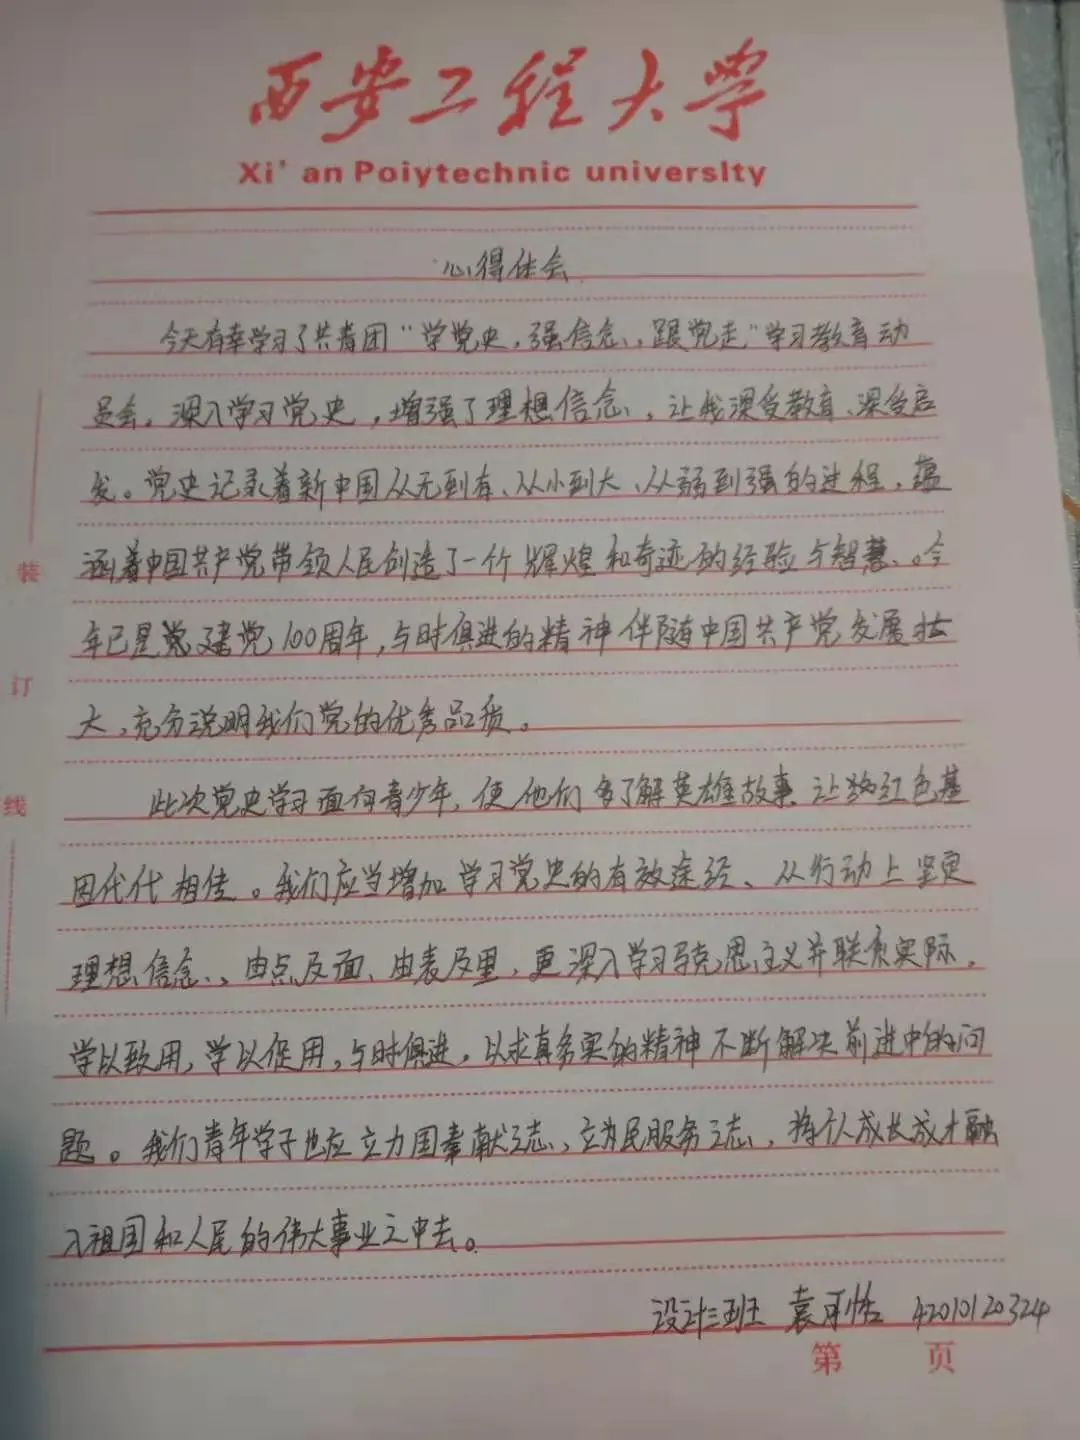 西安工程大学
Xi' an Poiytechnic universlty
心得体会
今天有幸学习了共青团“学党史,强信念、,跟党走”学习教育动
员会。深入学习党史,增强了理想信念、,让我深受教育、深受启
发。党史记录着新中国从无到有、从小到大、从弱到强的过程,蕴
涵着中国共产党带领人民创造了一个辉煌和奇迹的经验与智慧、。今
年已是党建党100周年,与时俱进的精神伴随中国共产党发展壮
大,充分说明我们党的优秀品质。
此次党史学习面向青少年,使他们多了解英雄故事 让红色基
因代代相传。我们应当增加学习党史的有效途经、从行动上坚定
理想信念、、由点及面、由表及里,更深入学习马克思主义并联系实际,
学以致用,学以促用,与时俱进,以求真务实的精神不断解决前进中的问
题。我们青年学子也应立为国奉献之志、立为民服务之志,将个人成长成才融
入祖国和人民的伟大事业之中去。
设计三班 袁 42010120324
第 页
装
订
线